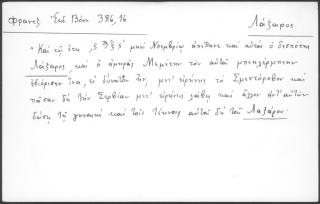 Φραντζ. Ἔκδ. Βόνν 386,16 Λάζαρος
"Καὶ τῷ ἔτει , ϛ Ϡ ξ ϛ´ μηνὶ Νοεμβρίῳ ἀπέθανε καὶ αὐτὸς ὁ δεσπότης
Λάζαρος καὶ ὁ ἀμηρᾶς Μεμέτης τὸν αὐτοῦ μπεηλέρμπεην
ἵνα, εἰ δύναται , μετ' εἰρήνης τὸ Σμεντόροβον καὶ
πᾶσαν δὴ τὴν Σερβίαν μετ' εἰρήνης λάβῃ καὶ ἄλλον ἀντ' αὐτῶν
δώσῃ τῇ γυναικὶ καὶ τοῖς τέκνοις αὐτοῦ δὴ τοῦ Λαζάρου.